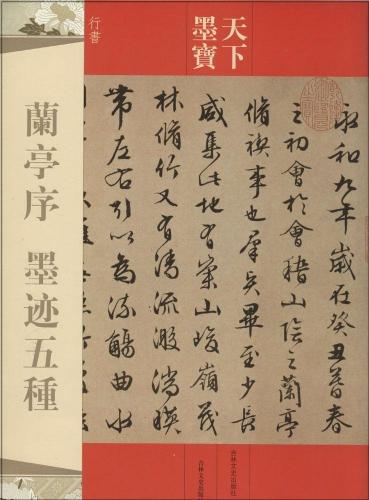 天下
墨寶
行書
蘭亭序 墨迹五種
永和九年歲在癸丑暮春
之初會於會稽山陰之蘭亭
脩稧事也羣賢畢至少長
咸集此地有崇山峻領茂
林脩竹又有清流激湍暎
帶左右引以為流觴曲水
吉林文史出版社
吉林文史出版